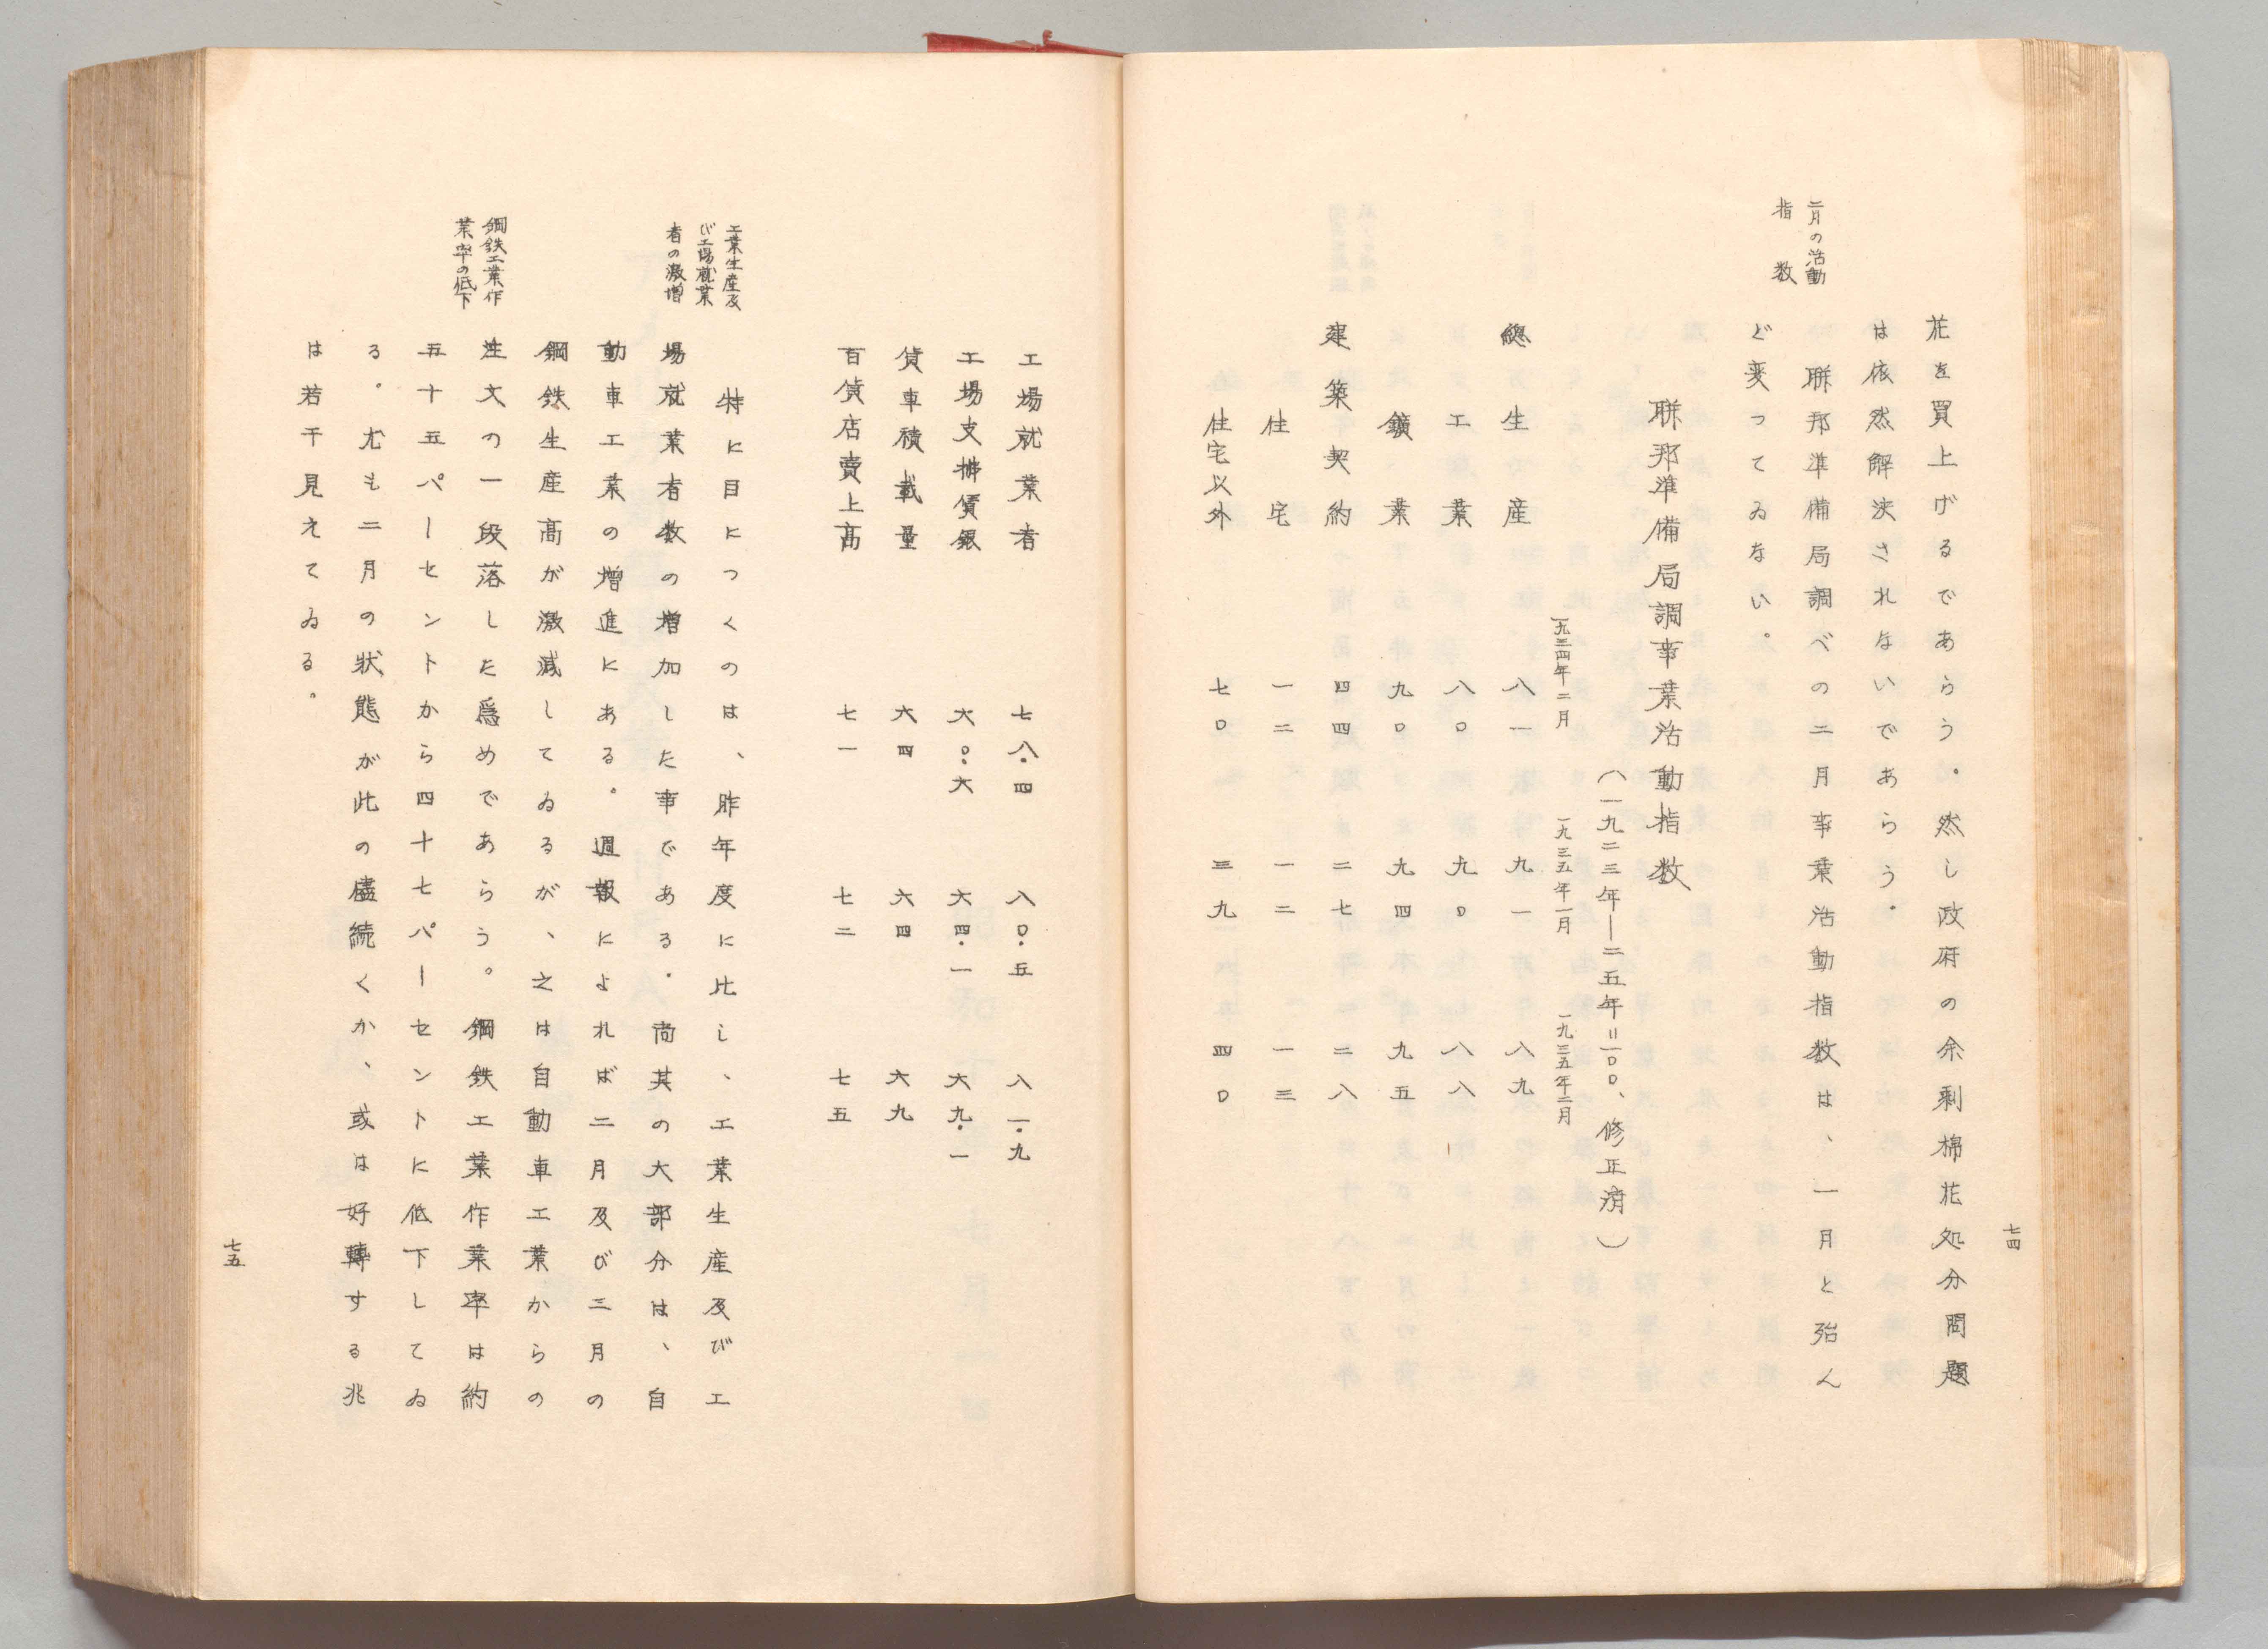 七四
花を買上げるであらう。然し政府の余剰棉花処分問題
は依然解決されないであらう。
二月の活動
指数
聯邦準備局調べの二月事業活動指数は、一月と殆ん
ど変ってゐない。
聯邦準備局調事業活動指数
(一九二三年―二五年=一〇〇、修正済)
一九三四年二月 一九三五年一月 一九三五年二月
總生産 八一 九一 八九
工業 八〇 九〇 八八
鑛業 九〇 九四 九五
建築契約 四四 二七 二八
住宅 一二 一二 一三
住宅以外 七〇 三九 四〇
工場就業者 七八.四 八〇.五 八一.九
工場支拂賃銀 六〇.六 六四.一 六九.一
貨車積載量 六四 六四 六九
百貨店賣上高 七一 七二 七五
工業生産及
び工場就業
者の激増
特に目につくのは、昨年度に比し、工業生産及び工
場就業者数の増加した事である。尚其の大部分は、自
動車工業の増進にある。週報によれば二月及び三月の
鋼鉄生産高が激減してゐるが、之は自動車工業からの
鋼鉄工業作
業率の低下
注文の一段落した爲めであらう。鋼鉄工業作業率は約
五十五パーセントから四十七パーセントに低下してゐ
る。尤も二月の状態が此の儘続くか、或は好轉する兆
は若干見えてゐる。
七五